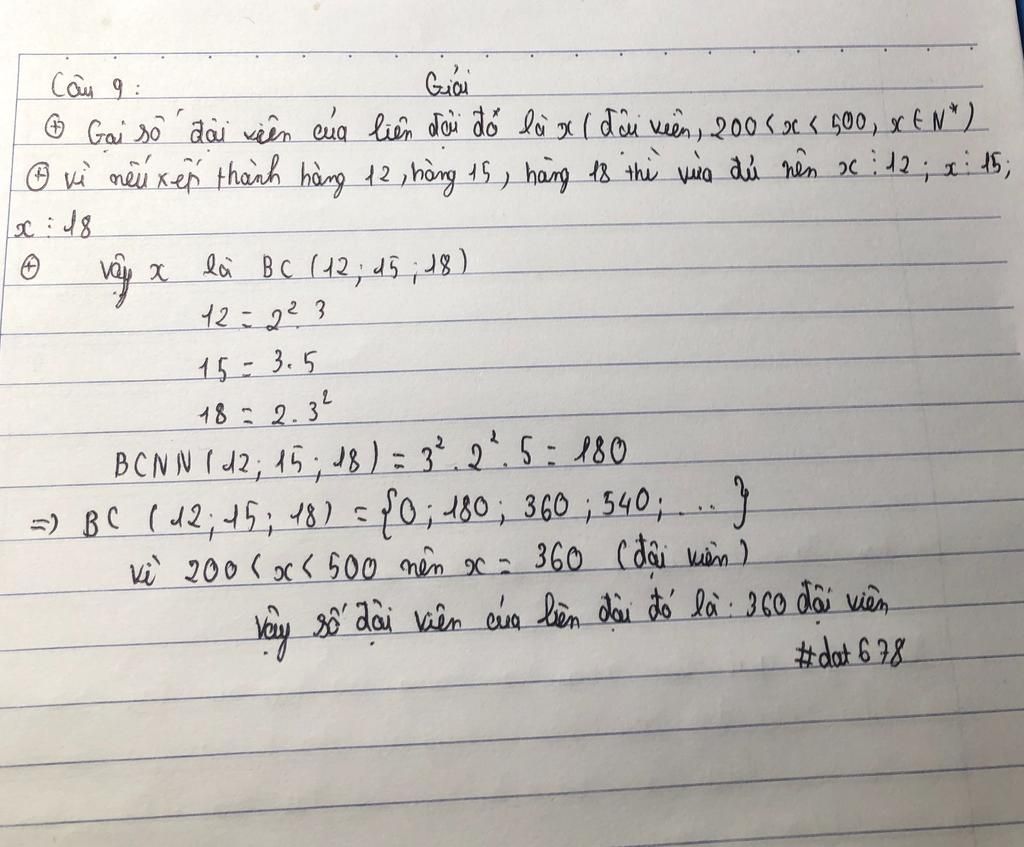 Câu 9: Giải
⊕ Gọi số đội viên của liên đội đó là x (đội viên, 200 < x < 500, x ∈ N*)
⊕ Vì nếu xếp thành hàng 12, hàng 15, hàng 18 thì vừa đủ nên x ⋮ 12; x ⋮ 15;
x ⋮ 18
⊕ Vậy x là BC (12; 15; 18)
12 = 2². 3
15 = 3. 5
18 = 2. 3²
BCNN (12; 15; 18) = 3². 2². 5 = 180
=> BC (12; 15; 18) = {0; 180; 360; 540; ...}
Vì 200 < x < 500 nên x = 360 (đội viên)
Vậy số đội viên của liên đội đó là: 360 đội viên
#dat678